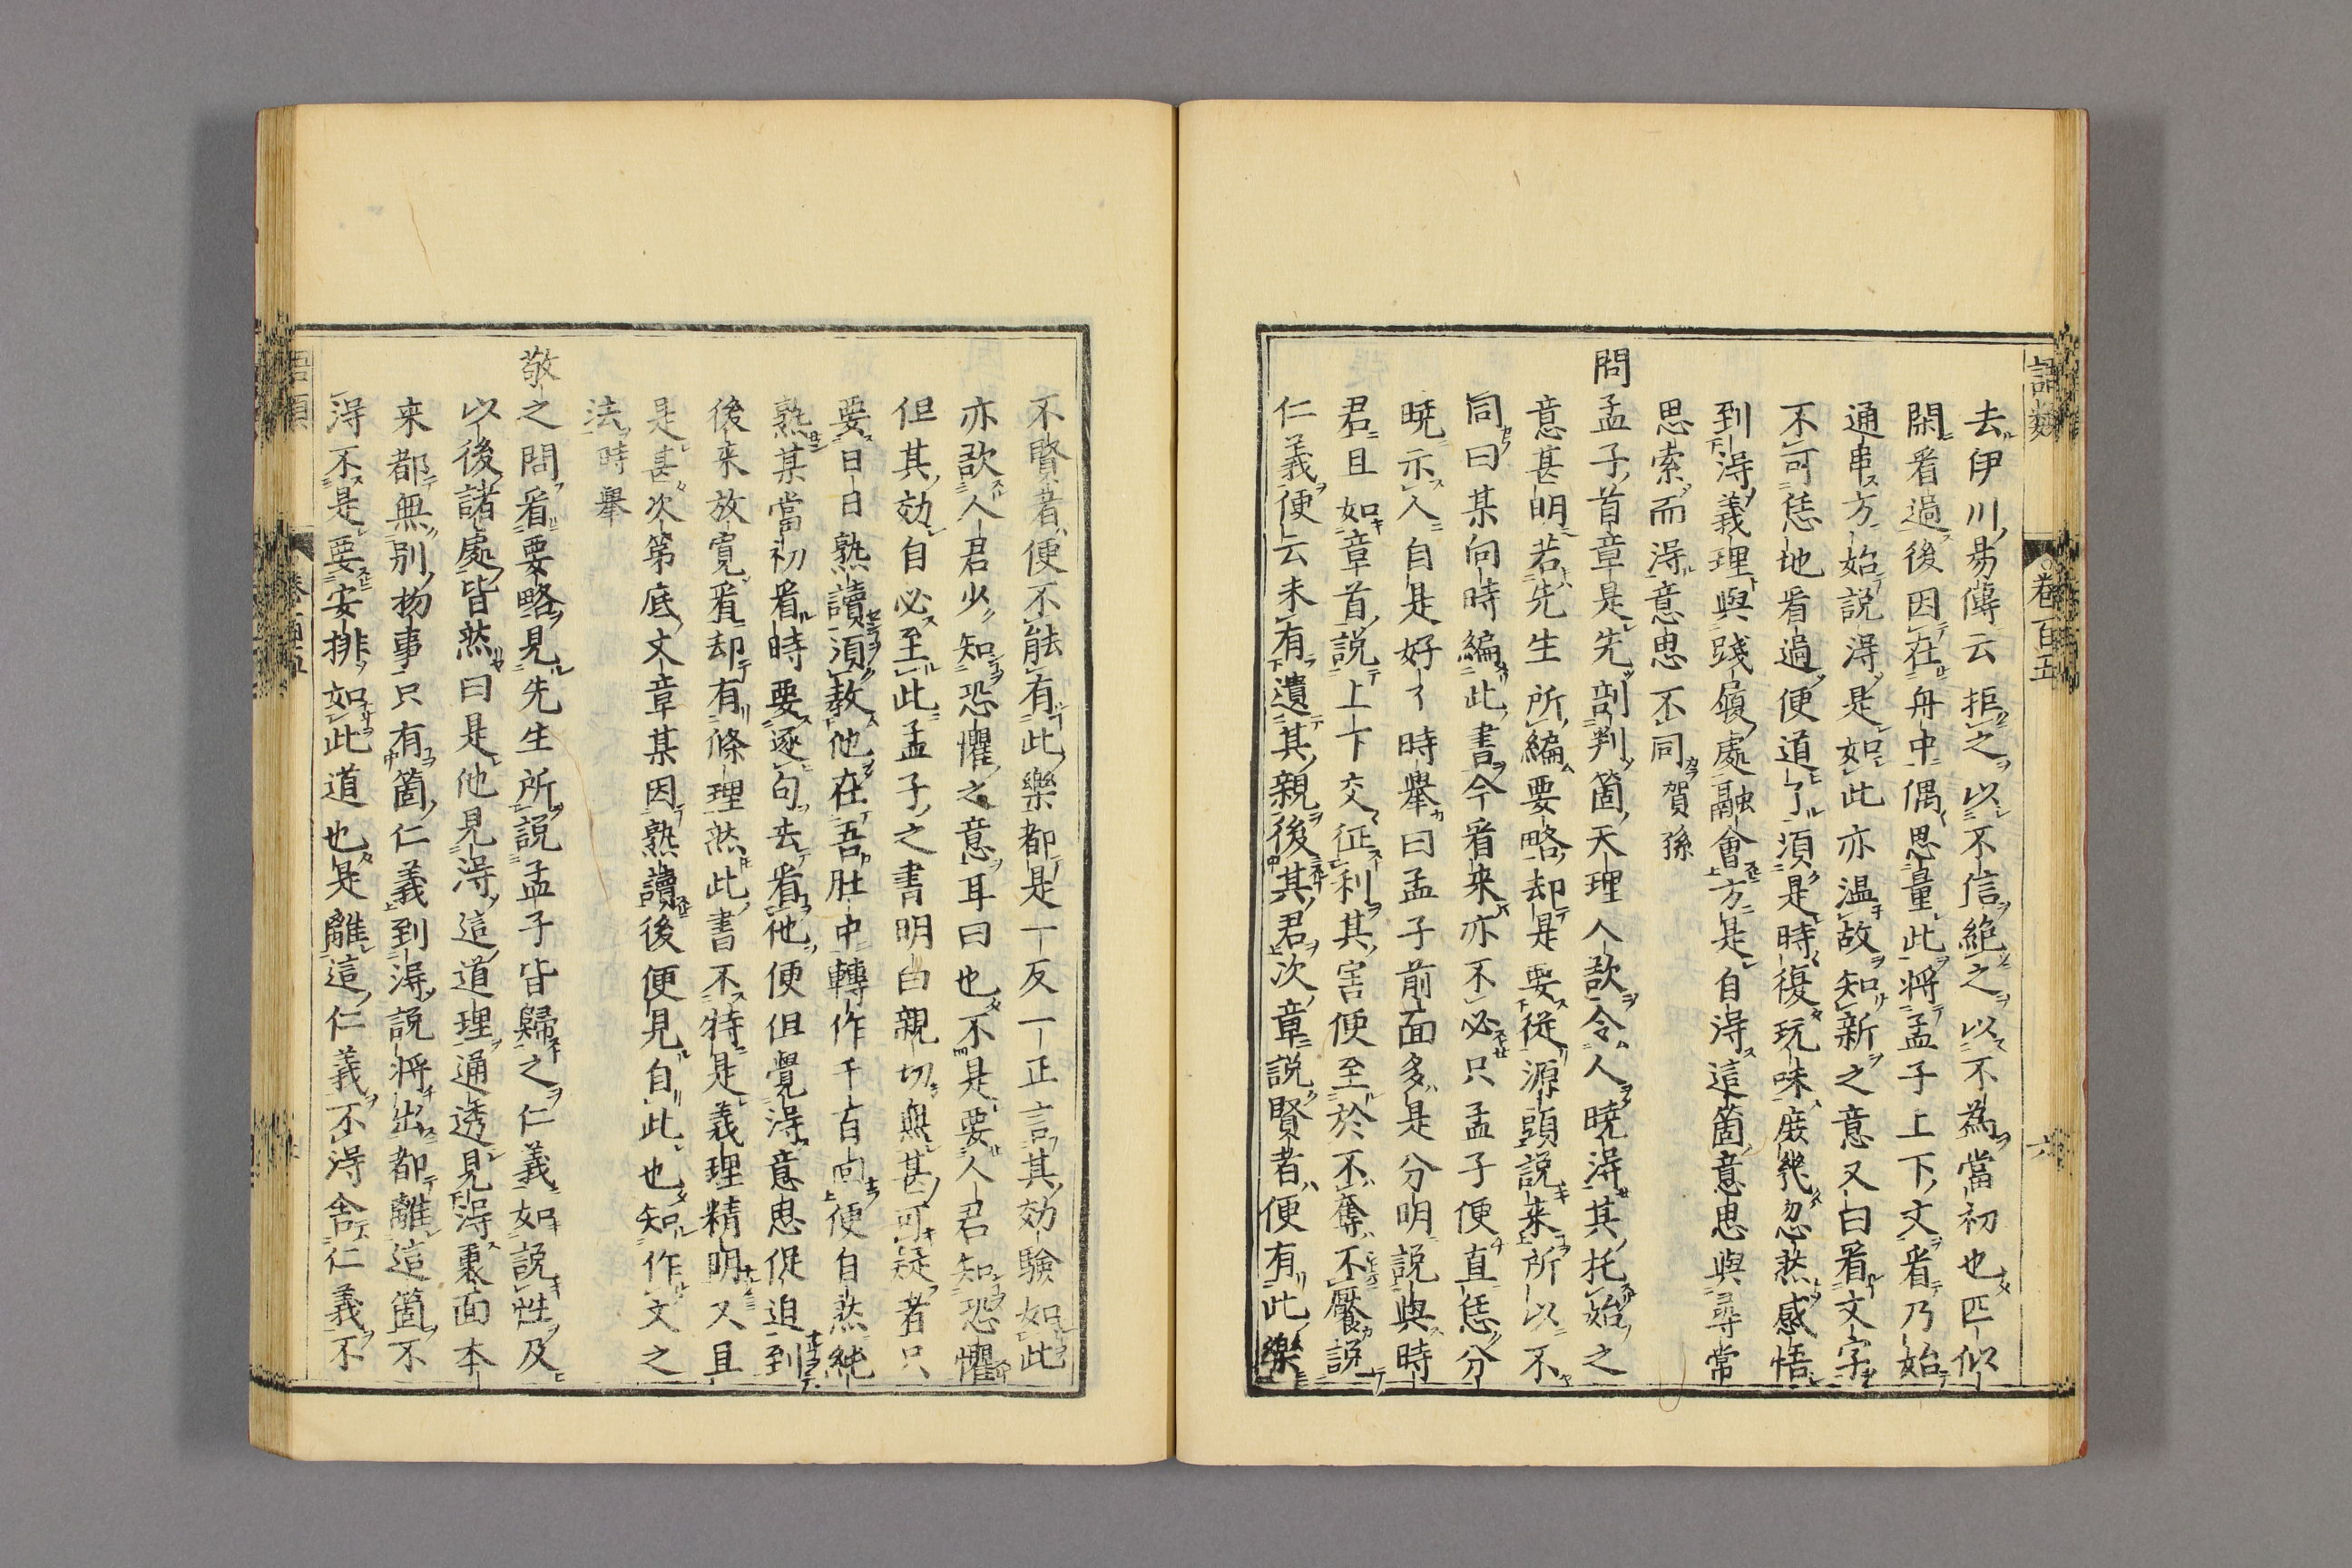 語類 卷百五 六
去伊川易傳云拒之以不信絶之以不為當初也匹似
閑看過後因在舟中偶思量此將孟子上下文看乃始
通串方始說得是如此亦温故知新之意又曰看文字
不可恁地看過便道了須是時復玩味庻幾忽然感悟
到得義理與踐履處融會方是自得這箇意思與尋常
思索而得意思不同賀孫
問孟子首章是先剖判箇天理人欲令人曉得其托始之
意甚明若先生所編要略却是要従源頭說来所以不
同曰某向時編此書今看来亦不必只孟子便直恁分
曉示人自是好了時舉曰孟子前面多是分明說與時
君且如章首說上下交征利其害便至於不奪不饜說
仁義便云未有遺其親後其君次章說賢者便有此樂
不賢者便不能有此樂都是一反一正言其効驗如此
亦欲人君少知恐懼之意耳曰也不是要人君知恐懼
但其効自必至此孟子之書明白親切無甚可疑者只
要日日熟讀須教他在吾肚中轉作千百囬便自然純
熟某當初看時要逐句去看他便但覺得意思促迫到
後来放寛看却有條理然此書不特是義理精明又且
是甚次第底文章某因熟讀後便見自此也知作文之
法時舉
敬之問看要略見先生所說孟子皆歸之仁義如說性及
以後諸處皆然曰是他見得這道理通透見得裏面本
来都無别物事只有箇仁義到得說將出都離這箇不
得不是要安排如此道也是離這仁義不得舍仁義不
語類 卷百五